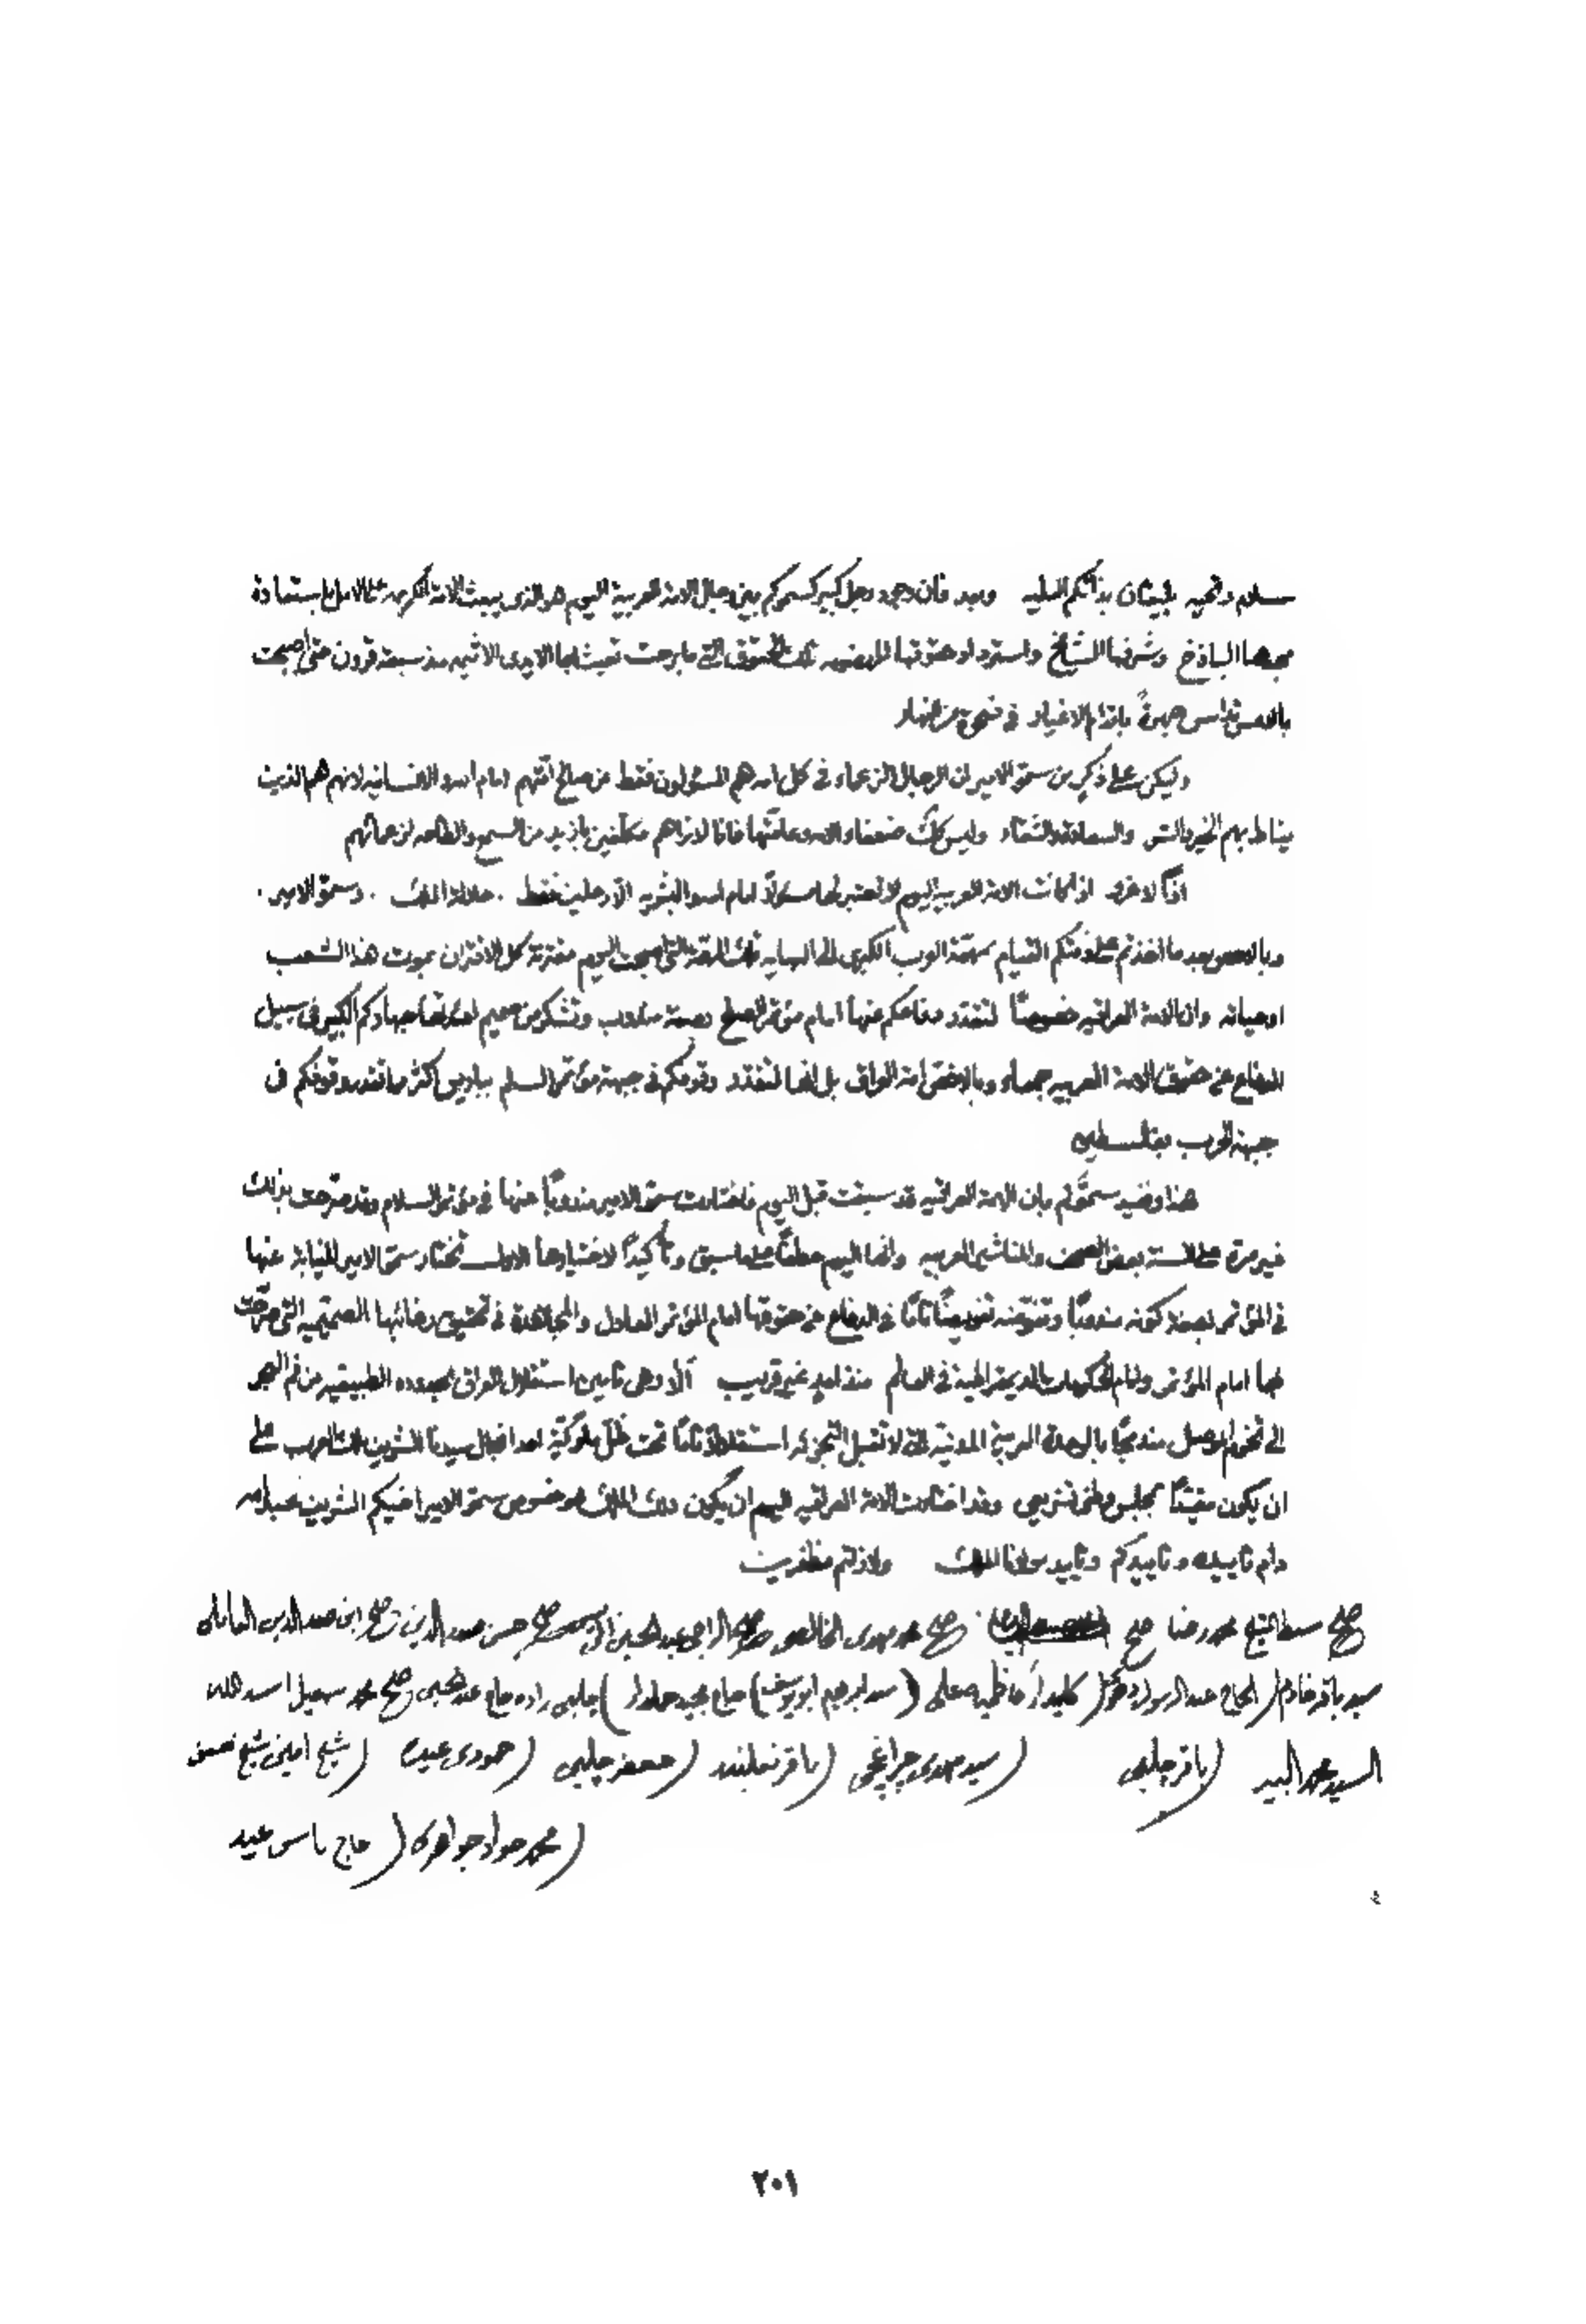 سلام وتحيه يليقان بذاتكم العليه وبعد فان وجود رجل كبير كسموكم بين رجال الامة العربية اليوم هو الذى يبعث الامة الكريمة على الامل باستعادة
مجدها الباذخ وشرفها الشامخ واسترداد حقوقها المهضومه تلك الحقوق التى ما برحت تعبث بها الايدى الاثيمه منذ سبعة قرون حتى اصبحت
بالامس تداس جهرةً باقدام الاغيار فى ضحوة من النهار
وليكن على ذكر من سمو الامير ان الرجال الزعماء فى كل امه هم المسئولون فقط عن صالح امتهم امام اسرة الانسانيه لانهم هم الذين
يناط بهم الخير والشر والسعادة والشقاء وليس كذلك ضعفاء الامه وعامتها فانا لا نراهم مكلفين بازيد من السمع والطاعه لزعمائهم
اذاً لا غرو اذا كانت الامة العربية اليوم لا تعتبر لها مسئولاً امام اسرة البشريه الا رجلين فقط . جلالة الملك . وسمو الامير .
وبالخصوص بعد ما اخذتم على ذمتكم القيام بمهمة العرب الكبرى الى النهايه تلك المهمة التى اصبحت اليوم مقترنة كل الاقتران بموت هذا الشعب
او حياته وان الامة العراقيه خصوصاً لتقدر دفاعكم عنها امام مؤتمر الصلح بصفة مندوب وتشكر من صميم افئدتها جهادكم الكبير فى سبيل
الدفاع عن حقوق الامة العربيه جمعاء وبالاخص امة العراق بل انها لتقدر وقوفكم فى جبهة مؤتمر السلم بباريس اكثر مما تقدر وقوفكم فى
جبهة الحرب بفلسطين
هذا ونفيد سموكم بان الامة العراقيه قد سبقت قبل اليوم فاختارت سمو الامير مندوباً عنها فى مؤتمر السلام وقد صرحت بذلك
غير مرة على السنة بعض الصحف والمناشير العربيه وانها اليوم عطفاً على ما سبق وتأكيداً لاختيارها الاول تختار سمو الامير للنيابة عنها
فى المؤتمر بصفة كونه مندوباً وتفوضه تفويضاً تاماً فى الدفاع عن حقوقها امام المؤتمر العادل والمجاهدة فى تحقيق رغائبها الصميميه التى صرحت
بها امام المؤتمر وامام الحكومات الديمقراطية فى العالم منذ امدٍ غير قريب ألا وهى تامين استقلال العراق بحدوده الطبيعيه من فم البحر
الى تخوم الموصل مندمجاً بالوحدة العربية المدنية التى لا تقبل التجزئه استقلالاً تاماً تحت ظل ملوكية احد انجال سيدنا الشريف ملك العرب على
ان يكون مقيداً بمجلس وطنى تشريعى وقد اختارت الامة العراقيه اليوم ان يكون ذلك الملك هو خصوص سمو الامير اخيكم الشريف عبدالله
دام تاييده وتاييدكم وتاييد مولانا الملك ولا زلتم مظفرين
صح سبط الشيخ محمد رضا صح صح محمد مهدى الخالصى صح الراجى عبد الحسين صح حسن صدر الدين صح ابن صدر الدين العاملى
سيد باقر خادم ( الحاج عبد الرسول ( كليدار كاظميه على ( سيد ابراهيم ابو يوسف ) حاج مجيد ) چلبى زاده حاج عبد الحسين صح محمد اسد الله
السيد محمد السيد ( باقر چلبى ( سيد مهدى چراغچى ( باقر ( جعفر چلبى ( حمودى عبده ( شيخ امين شيخ حسن
( محمد جواد جواهر ( حاج ياس عيد
٢٠١